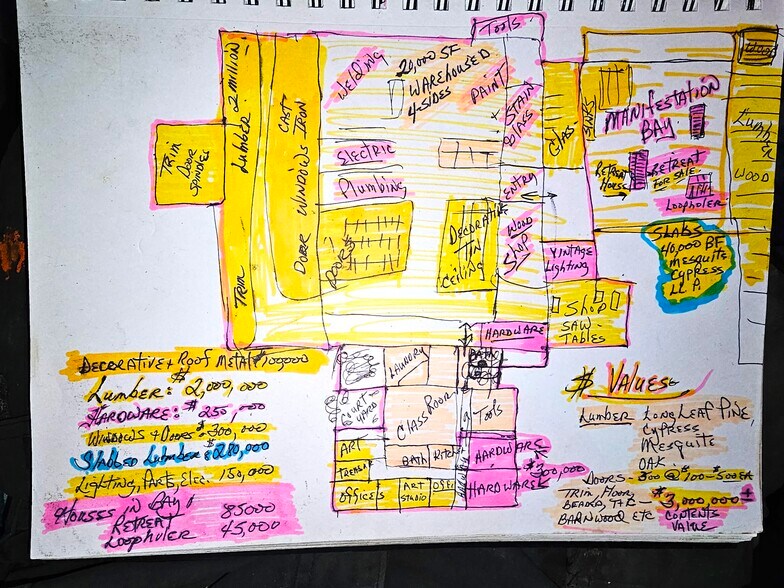 Tools
Welding
20,000 SF
WAREHOUSED
4-SIDES
PAINT
+ STAIN
GLASS
GLASS
SINKS
MANIFESTATION
BAY
Lumber
WOOD
RETREAT
HOUSE
RETREAT
FOR SALE
LOOPHOLER
TRIM
DOOR
SPINDLES
TRIM LUMBER 2 million
DOOR WINDOWS CAST IRON
Electric
Plumbing
DOORS
DECORATIVE
TIN
CEILING
ENTRY
WOOD
SHOP
VINTAGE
LIGHTING
SLABS
40,000 BF
MESQUITE
CYPRESS
LLP
Shop
SAW-
TABLES
HARDWARE
LAUNDRY
BATH
COURT
YARD
CLASSROOM
Tools
ART
TREASURE
BATH
Kitchen
HARDWARE
OFFICES
ART
STUDIO
OFFICE
HARDWARE
$300,000
DECORATIVE + ROOF METAL $100,000
Lumber: $2,000,000
HARDWARE: $250,000
WINDOWS + DOORS $300,000
Slabbed Lumber $280,000
Lighting, Parts, Elec. 150,000
HORSES IN BAY
RETREAT 85000
LOOPHOLER 45,000
$ VALUES
LUMBER LONG LEAF PINE
CYPRESS
MESQUITE
OAK
DOORS - 300 @ $100-$500 EA
TRIM, FLOOR,
BEADED, T+G
BARNWOOD ETC
$3,000,000+
CONTENTS
VALUE